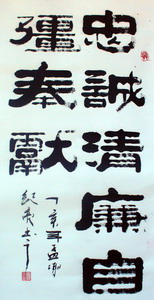 忠誠清廉自
彊奉獻
丁亥年孟